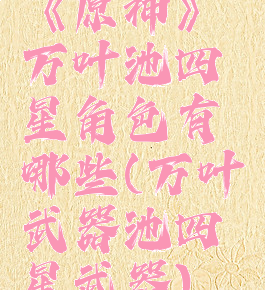 《原神》
万叶池四
星角色有
哪些(万叶
武器池四
星武器)